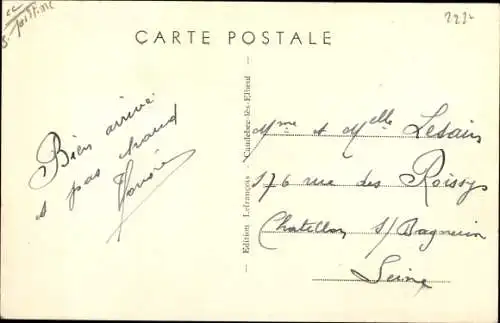 2232
CARTE POSTALE
Bien arrivé
et pas chaud
Honoré
Edition Lefrançois - Caudebec-lès-Elbeuf
Mme & Melle Lesain
176 rue des Roissys
Chatillon s/ Bagneux
Seine